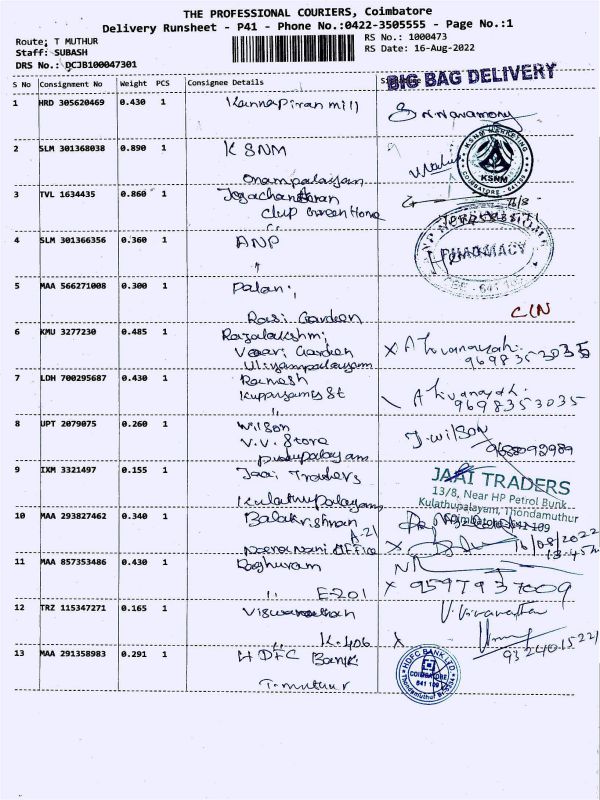 THE PROFESSIONAL COURIERS, Coimbatore
Delivery Runsheet - P41 - Phone No.:0422-3505555 - Page No.:1
Route: T MUTHUR
RS No.: 1000473
Staff: SUBASH
RS Date: 16-Aug-2022
DRS No.: DCJB100047301
BIG BAG DELIVERY
S No Consignment No Weight PCS Consignee Details
1 HRD 305620469 0.430 1 Kannapiran mill
2 SLM 301368038 0.890 1 KSNM
Onampalayam
KSNM MARKETING
KSNM
COIMBATORE - 641 109
3 TVL 1634435 0.860 1
Clup Green Home
16/8
4 SLM 301366356 0.360 1 ANP
PHARMACY
CBE - 641 109
5 MAA 566271008 0.300 1 Palani
Rasi Garden
C/N
6 KMU 3277230 0.485 1 Rajalakshmi
Garden
Uliyampalayam
X
9698353035
7 LDH 700295687 0.430 1 Ramesh
St
9698353035
8 UPT 2079075 0.260 1 Wilson
V.V. Store
J. Wilson
9688092989
9 IXM 3321497 0.155 1 Jaai Traders
Kulathupalayam
JAAI TRADERS
13/8, Near HP Petrol Bunk,
Kulathupalayam, Thondamuthur
Coimbatore-641 109
10 MAA 293827462 0.340 1 Balakrishnan
A-21
Office
X 16/08/2022
11 MAA 857353486 0.430 1 Raghuram
,, E-201
X 9597937009
12 TRZ 115347271 0.165 1 Viswanathan
K-406
X
9324015221
13 MAA 291358983 0.291 1 HDFC Bank
T-muthur
HDFC BANK LTD
COIMBATORE
641 109